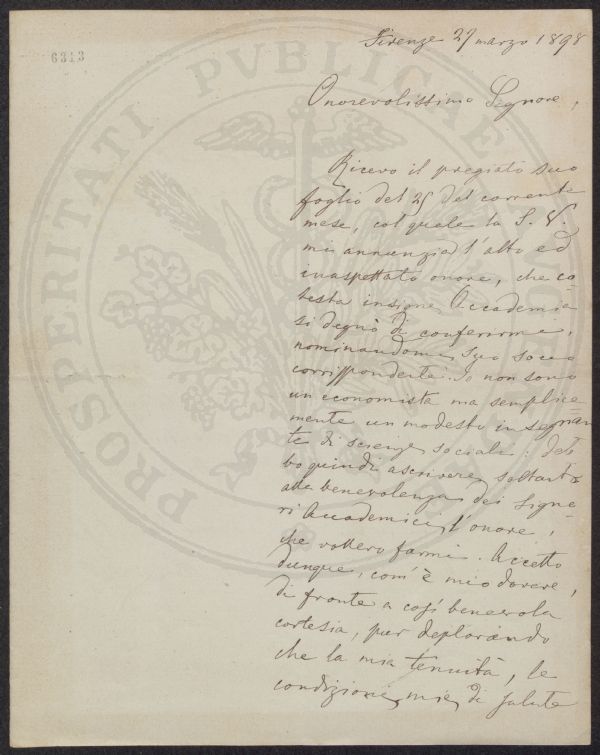 6313
Firenze 27 marzo 1898
Onorevolissimo Signore,
Ricevo il pregiato suo
foglio del 25 del corrente
mese, col quale la S. V.
mi annunzia l'alto ed
inaspettato onore, che co=
testa insigne Accademia
si degnò di conferirme,
nominandomi suo socio
corrispondente. Io non sono
un economista ma semplice=
mente un modesto insegnan
te di scienze sociali: deb
bo quindi ascrivere soltanto
alla benevolenza dei Signo=
ri Accademici, l'onore,
che vollero farmi. Accetto
dunque, com'è mio dovere,
di fronte a così benevola
cortesia, pur deplorando
che la mia tenuità, le
condizioni mie di salute
PROSPERITATI PVBLICAE